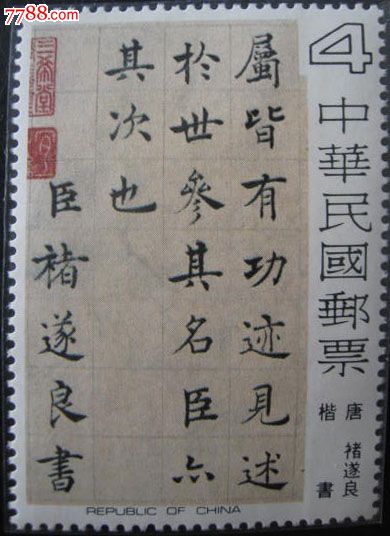 7788.com
4
中華民國郵票
唐 褚遂良
楷書
屬皆有功迹見述
於世參其名臣亦
其次也
臣褚遂良書
三希堂
REPUBLIC OF CHINA